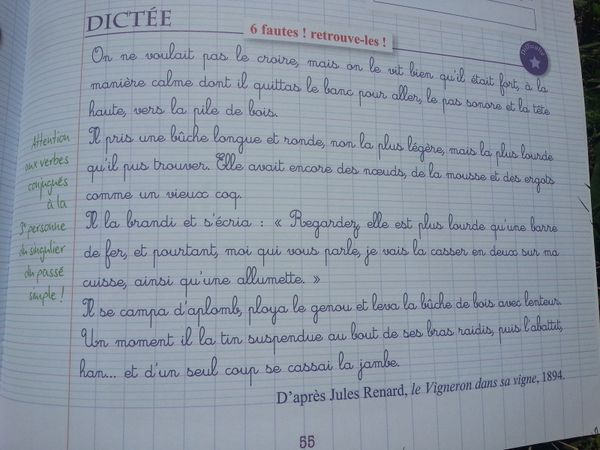 DICTÉE
6 fautes ! retrouve-les !
Difficulté
On ne voulait pas le croire, mais on le vit bien qu'il était fort, à la
manière calme dont il quittas le banc pour aller, le pas sonore et la tête
haute, vers la pile de bois.
Il pris une bûche longue et ronde, non la plus légère, mais la plus lourde
qu'il pus trouver. Elle avait encore des nœuds, de la mousse et des ergots
comme un vieux coq.
Il la brandi et s'écria : « Regardez, elle est plus lourde qu'une barre
de fer, et pourtant, moi qui vous parle, je vais la casser en deux sur ma
cuisse, ainsi qu'une allumette. »
Il se campa d'aplomb, ploya le genou et leva la bûche de bois avec lenteur.
Un moment il la tin suspendue au bout de ses bras raidis, puis l'abattit,
han... et d'un seul coup se cassai la jambe.
D'après Jules Renard, le Vigneron dans sa vigne, 1894.
Attention
aux verbes
conjugués
à la
3e personne
du singulier
du passé
simple !
55